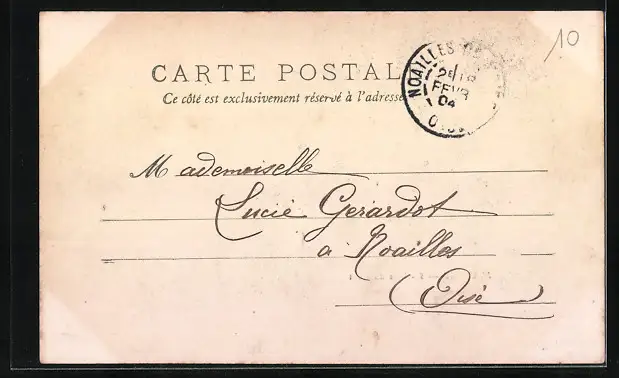 10
CARTE POSTAL
Ce côté est exclusivement réservé à l'adresse
NOAILLES
FEVR
04
Mademoiselle
Lucie Gerardot
a Noailles
(Oise)